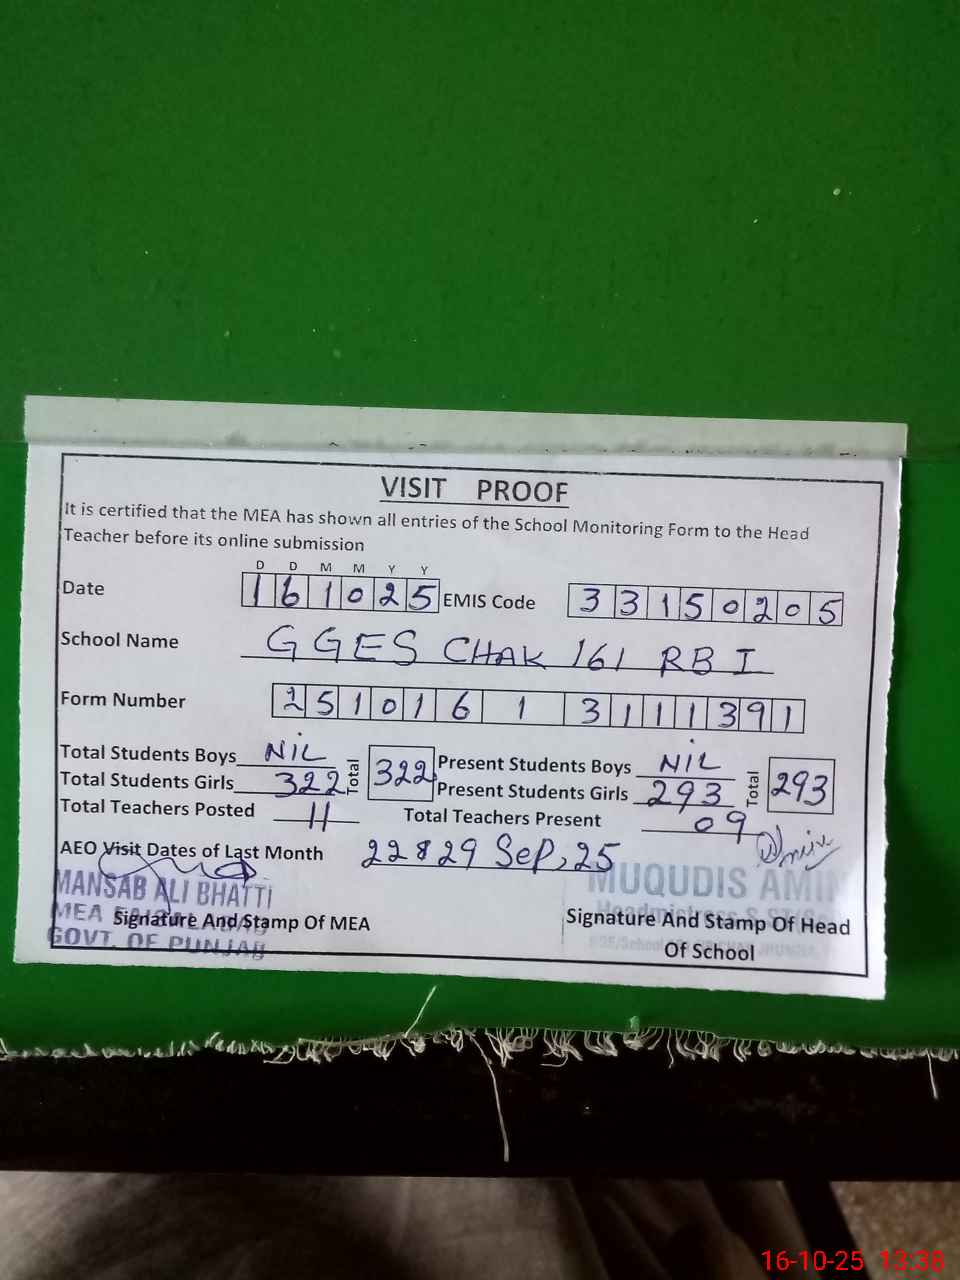 VISIT PROOF
It is certified that the MEA has shown all entries of the School Monitoring Form to the Head
Teacher before its online submission
D D M M Y Y
Date 1 6 1 0 2 5 EMIS Code 3 3 1 5 0 2 0 5
School Name GGES CHAK 161 RB I
Form Number 2 5 1 0 1 6 1 3 1 1 1 3 9 1
Total Students Boys NIL Total 322 Present Students Boys NIL Total 293
Total Students Girls 322 Present Students Girls 293
Total Teachers Posted 11 Total Teachers Present 09
AEO Visit Dates of Last Month 22 & 29 Sep, 25
Amin
MANSAB ALI BHATTI
MEA FAISALABAD
GOVT. OF PUNJAB
Signature And Stamp Of MEA
MUQUDIS AMIN
Headmistress
Signature And Stamp Of Head
Of School
16-10-25 13:38